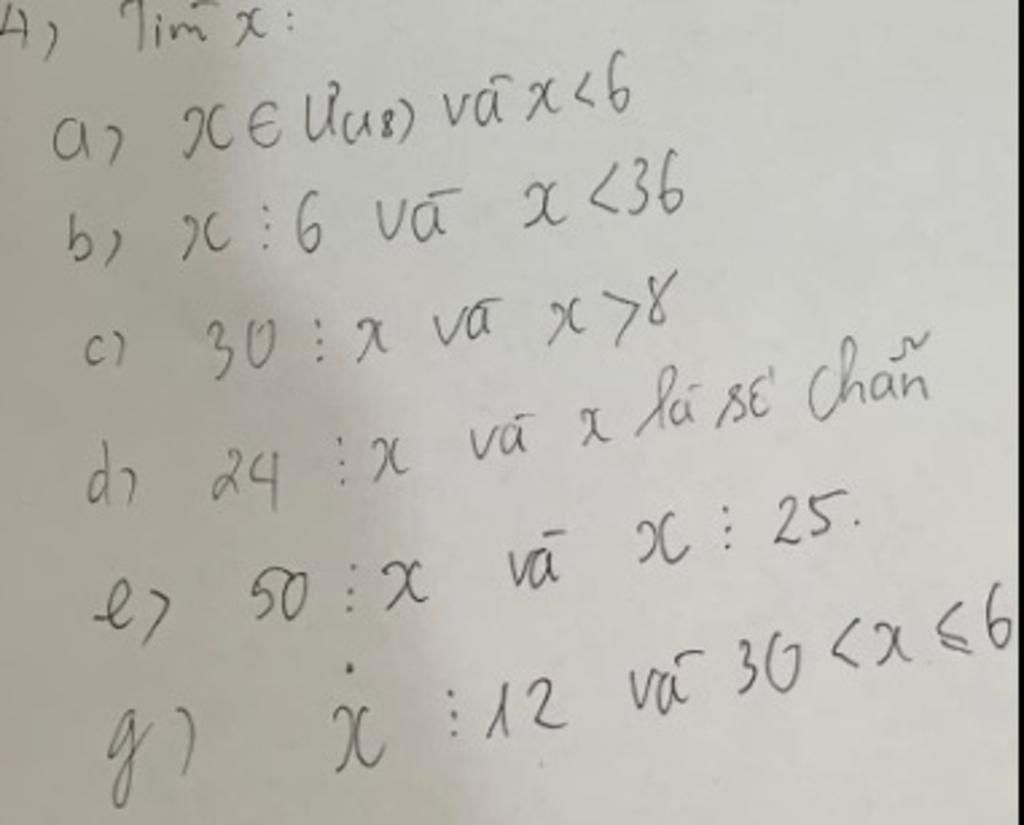 4) Tìm x:
a) x ∈ Ư(18) và x < 6
b) x ⋮ 6 và x < 36
c) 30 ⋮ x và x > 8
d) 24 ⋮ x và x là số chẵn
e) 50 ⋮ x và x ⋮ 25.
g) x ⋮ 12 và 30 < x ≤ 6